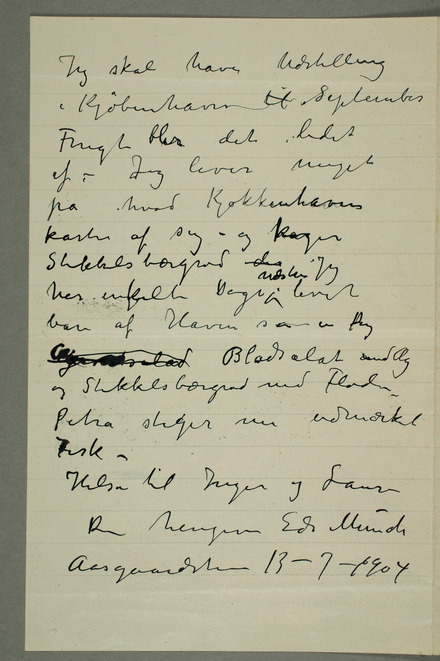 Jeg skal have Udstilling
i Kjøbenhavn til September
Frugt blir det lidet
af – Jeg lever meget
på hvad Kjøkkenhaven
kaster af sig – og koger
Stikkelsbærgrød des næsten Jeg
har enkelte Dage levet
bare af Haven som en Ry
Bladsalat
og Stikkelsbærgrød med Fløde –
Petra steger nu udmærket
Fisk –
Hilsen til Inger og Laura
Din hengivne Edv Munch
Aasgaardstran 13 – 7 – 1904